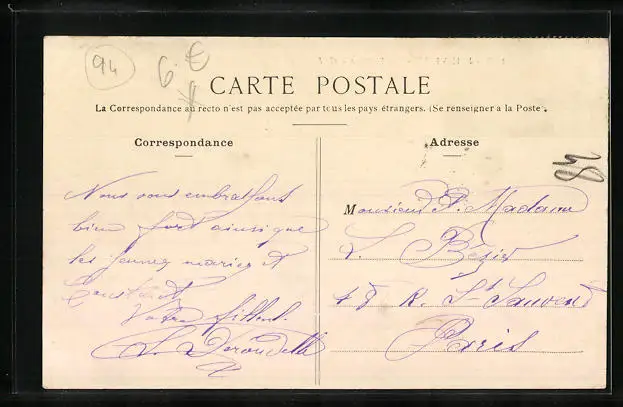 94
6 €
CARTE POSTALE
La Correspondance au recto n'est pas acceptée par tous les pays étrangers. (Se renseigner à la Poste).
Correspondance
Adresse
Nous vous embrassons
bien fort ainsi que
les jeunes mariés et
Votre
Monsieur et Madame
L. Bézier
48 R. St Sauveur
Paris